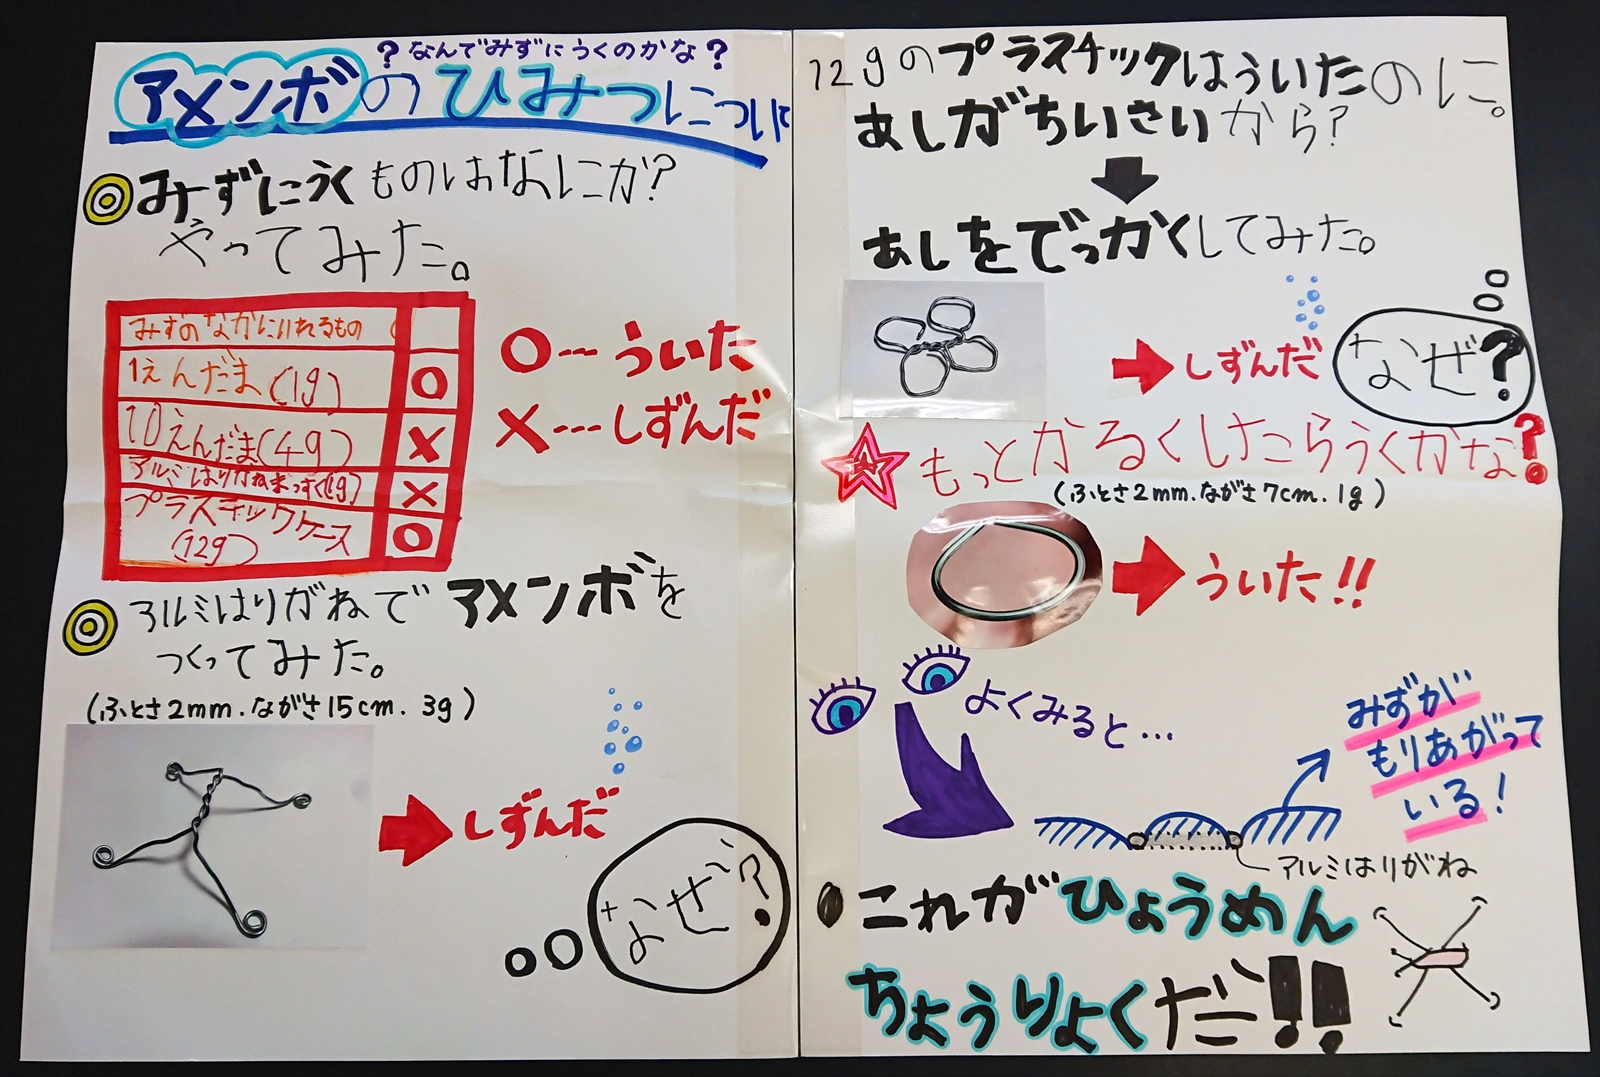 ?なんでみずにうくのかな?
アメンボのひみつについて
みずにうくものはなにか?
やってみた。
みずのなかにいれるもの
1えんだま(1g) O
10えんだま(4g) X
アルミはりがねまっすぐ(1g) X
プラスチックケース
(12g) O
O---ういた
X---しずんだ
アルミはりがねでアメンボを
つくってみた。
(ふとさ2mm.ながさ15cm.3g)
しずんだ
なぜ?
12gのプラスチックはういたのに。
あしがちいさいから?
あしをでっかくしてみた。
しずんだ
なぜ?
もっとかるくしたらうくかな?
(ふとさ2mm.ながさ7cm.1g)
ういた!!
よくみると…
みずが
もりあがって
いる!
アルミはりがね
これがひょうめん
ちょうりょくだ!!